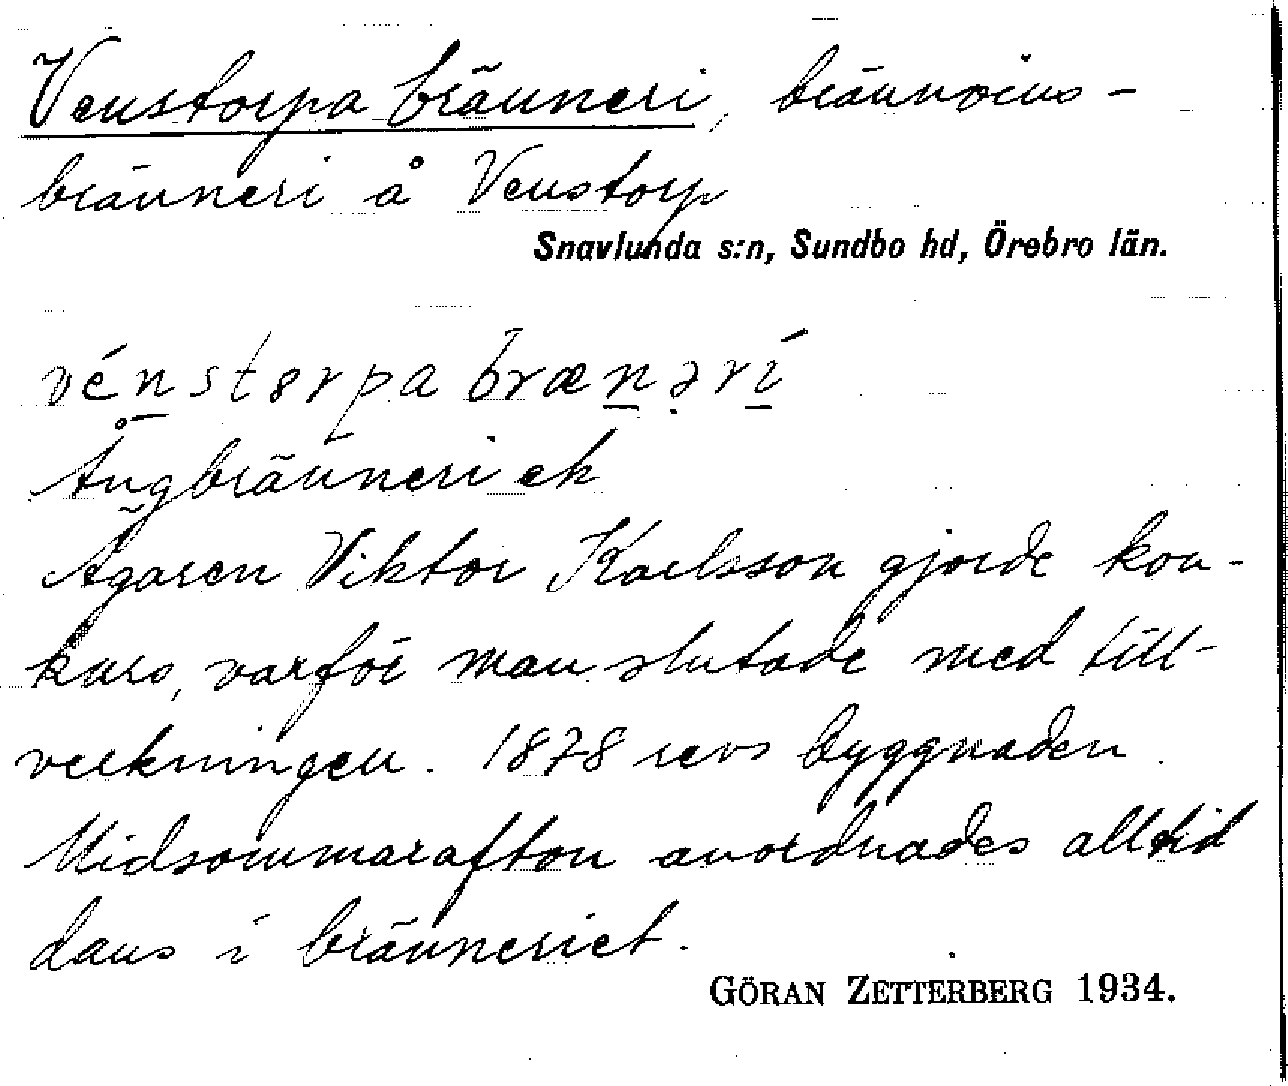 Venstorpa bränneri, brännvins-
bränneri å Venstorp
Snavlunda s:n, Sundbo hd, Örebro län.
vénstørpa brænərí
Ångbränneri ek
Ägaren Viktor Karlsson gjorde kon-
kurs, varför man slutade med till-
verkningen. 1878 revs byggnaden.
Midsommarafton anordnades alltid
dans i bränneriet.
GÖRAN ZETTERBERG 1934.